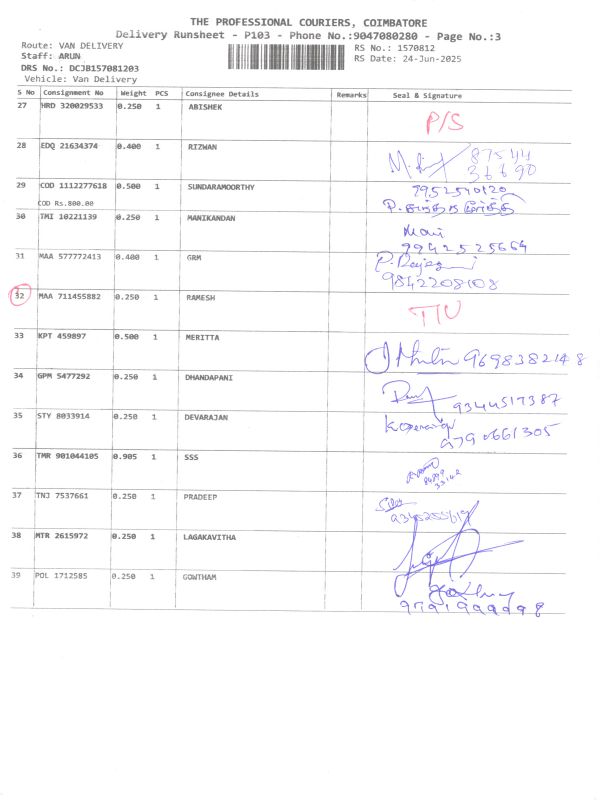 THE PROFESSIONAL COURIERS, COIMBATORE
Delivery Runsheet - P103 - Phone No.:9047080280 - Page No.:3
Route: VAN DELIVERY RS No.: 1570812
Staff: ARUN RS Date: 24-Jun-2025
DRS No.: DCJB157081203
Vehicle: Van Delivery
S No Consignment No Weight PCS Consignee Details Remarks Seal & Signature
27 HRD 320029533 0.250 1 ABISHEK
P/S
28 EDQ 21634374 0.400 1 RIZWAN
87544
36690
29 COD 1112277618 0.500 1 SUNDARAMOORTHY
7952540120
COD Rs.800.00
30 TMI 10221139 0.250 1 MANIKANDAN
Mani
9942525664
31 MAA 577772413 0.400 1 GRM
9842208108
32 MAA 711455882 0.250 1 RAMESH
33 KPT 459897 0.500 1 MERITTA
9698382148
34 GPM 5477292 0.250 1 DHANDAPANI
9344517387
35 STY 8033914 0.250 1 DEVARAJAN
36 TMR 901044105 0.905 1 SSS
37 TNJ 7537661 0.250 1 PRADEEP
38 MTR 2615972 0.250 1 LAGAKAVITHA
39 POL 1712585 0.250 1 GOWTHAM
9791999998